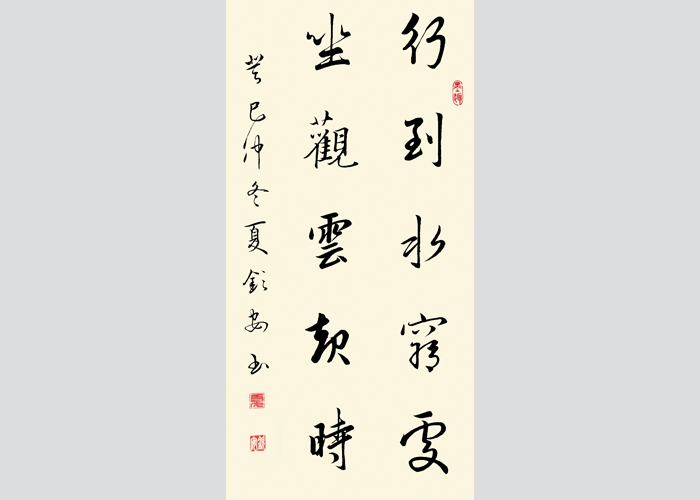 行到水窮處
坐觀雲起時
癸巳仲冬夏欽安書